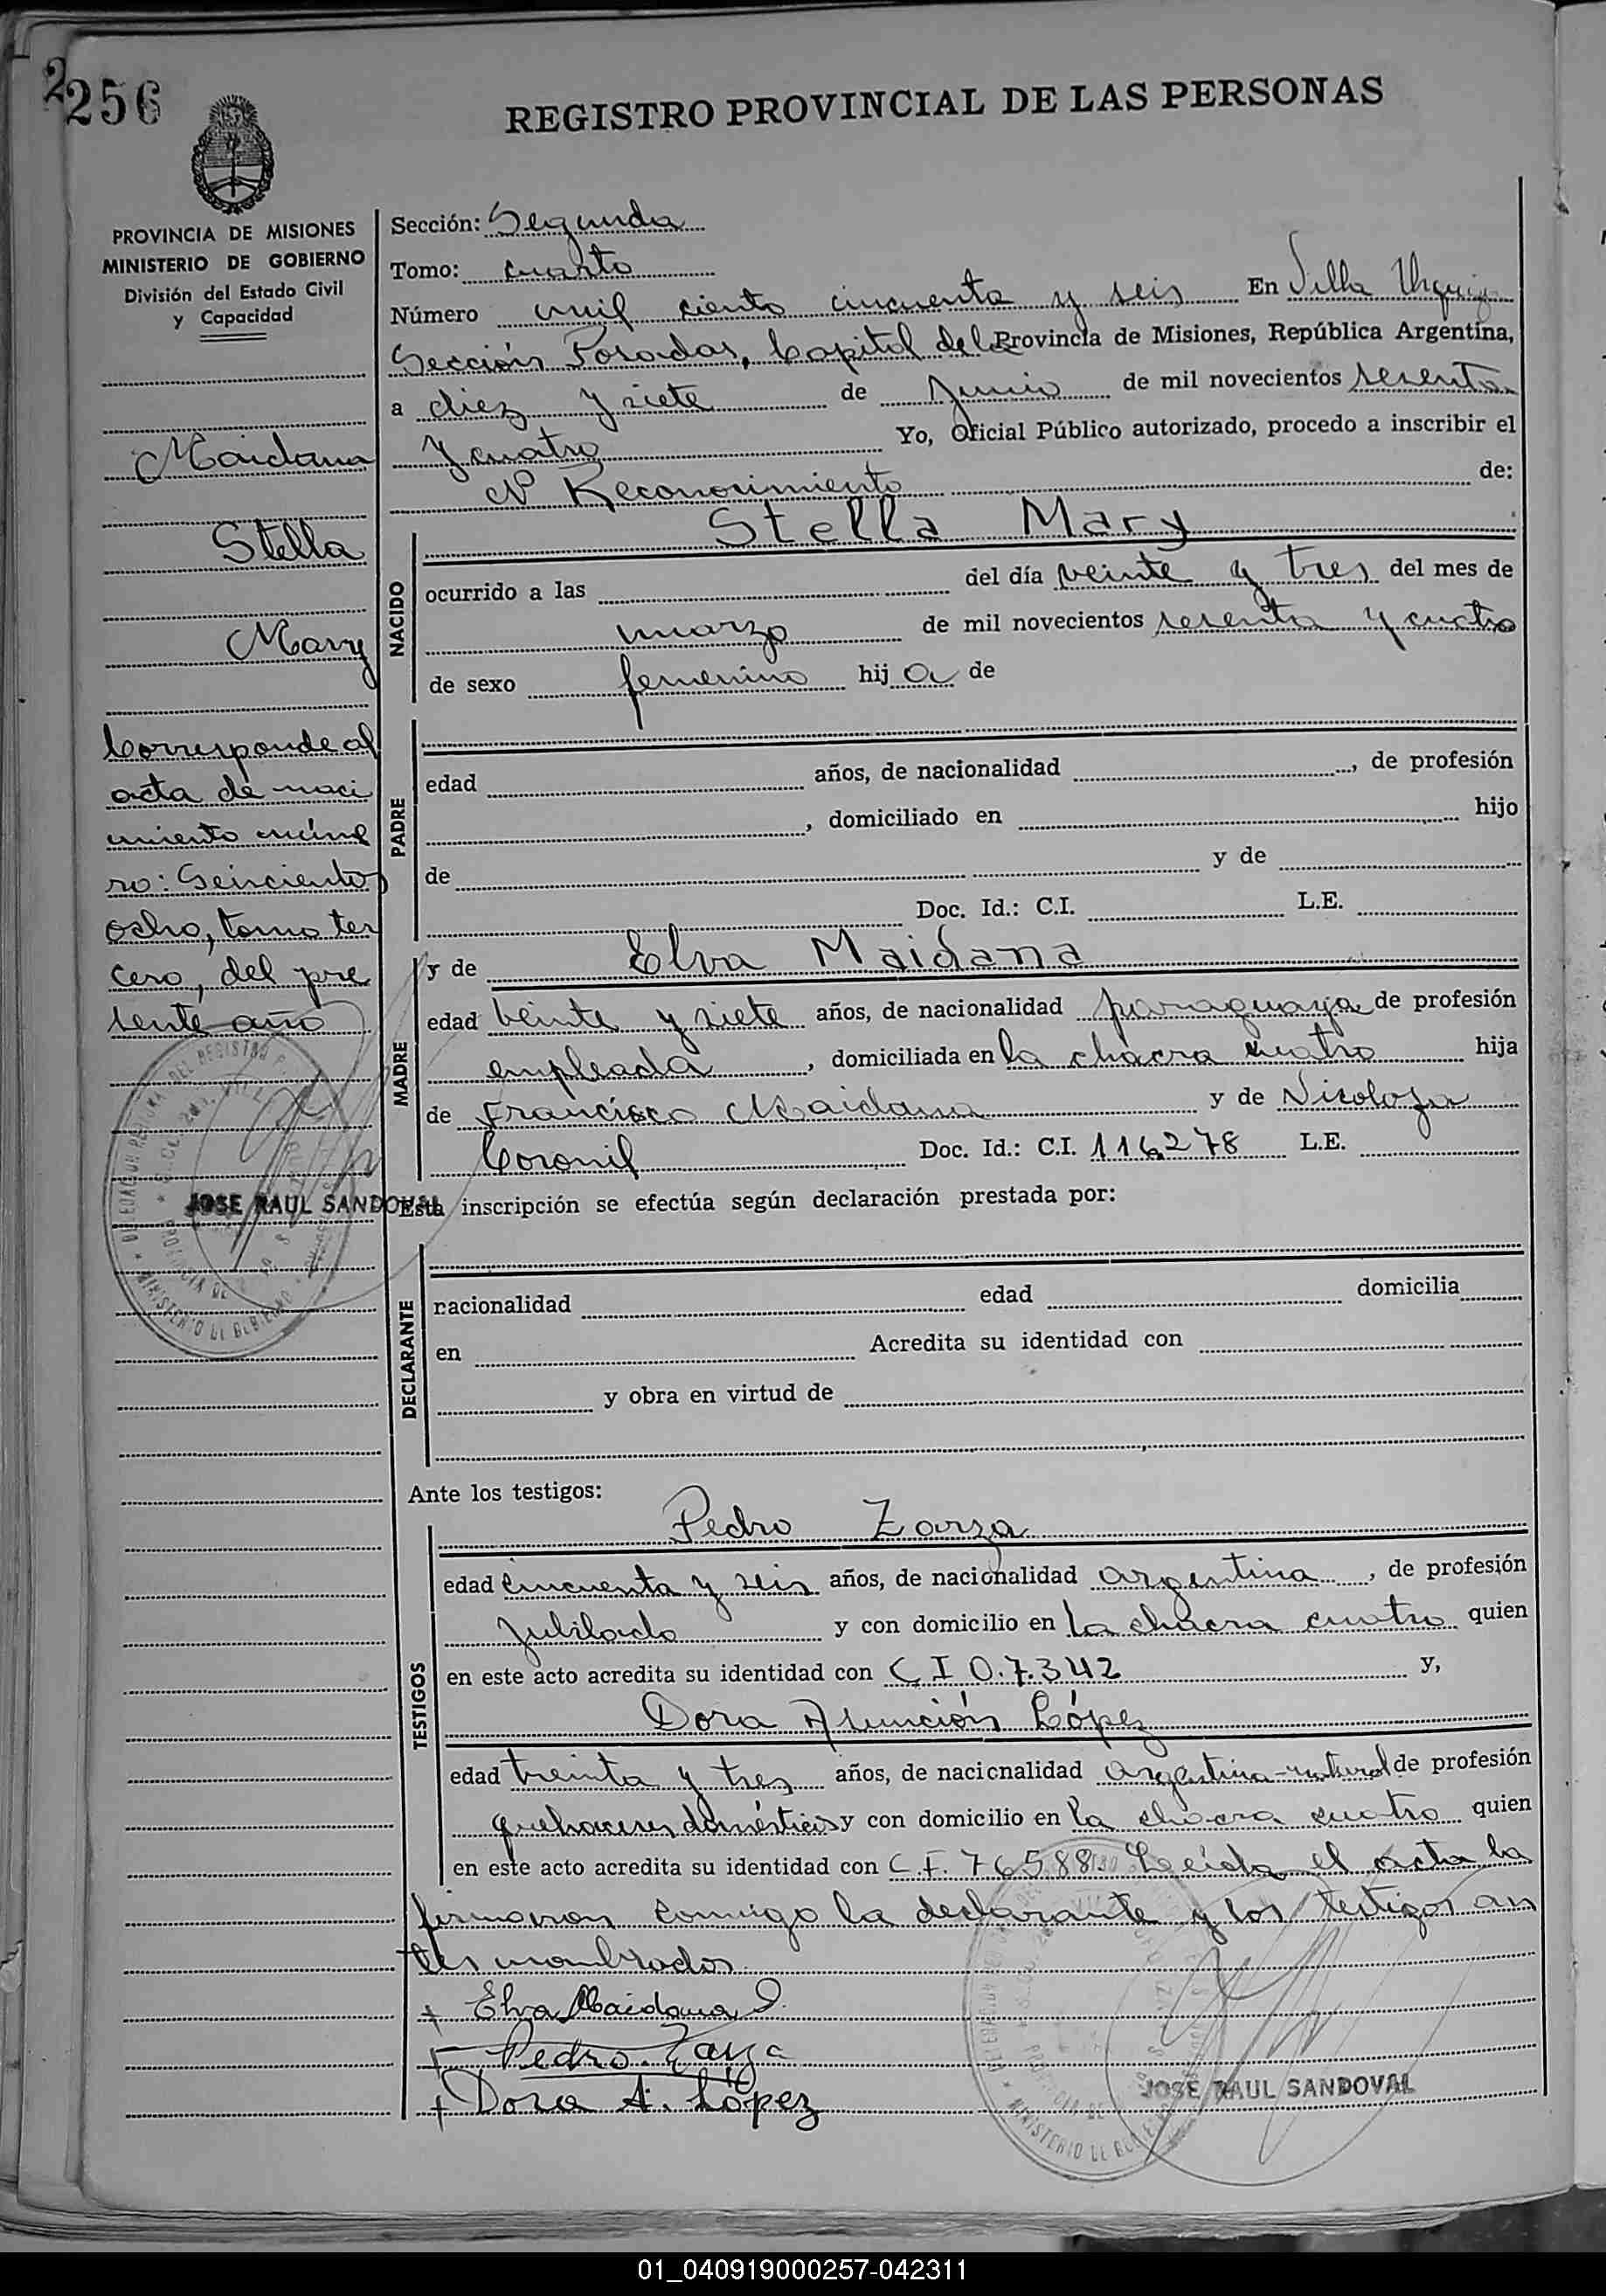 2256
REGISTRO PROVINCIAL DE LAS PERSONAS
PROVINCIA DE MISIONES
MINISTERIO DE GOBIERNO
División del Estado Civil
y Capacidad
Maidana
Stella
Mary
Corresponde al
acta de naci
miento núme
ro: Seiscientos
ocho, tomo ter
cero, del pre
sente año
JOSE RAUL SANDOVAL
Sección: Segunda
Tomo: cuarto
Número mil ciento cincuenta y seis En Villa Urquiza
Sección Posadas, Capital de la Provincia de Misiones, República Argentina,
a diez y siete de Junio de mil novecientos sesenta
y cuatro Yo, Oficial Público autorizado, procedo a inscribir el
Reconocimiento de:
NACIDO
Stella Mary
ocurrido a las del día veinte y tres del mes de
marzo de mil novecientos sesenta y cuatro
de sexo femenino hija de
PADRE
edad años, de nacionalidad , de profesión
, domiciliado en hijo
de y de
Doc. Id.: C.I. L.E.
MADRE
y de Elva Maidana
edad veinte y siete años, de nacionalidad paraguaya de profesión
empleada , domiciliada en la chacra cuatro hija
de Francisco Maidana y de Nicolasa
Coronil Doc. Id.: C.I. 116.278 L.E.
Esta inscripción se efectúa según declaración prestada por:
DECLARANTE
nacionalidad edad domicilia
en Acredita su identidad con
y obra en virtud de
Ante los testigos:
TESTIGOS
Pedro Zarza
edad cincuenta y seis años, de nacionalidad argentina , de profesión
Jubilado y con domicilio en la chacra cuatro quien
en este acto acredita su identidad con C I 0.7.342 y,
Dora Asunción López
edad treinta y tres años, de nacionalidad argentina-natural de profesión
quehaceres domésticos y con domicilio en la chacra cuatro quien
en este acto acredita su identidad con C.I. 76588. Leida el acta la
firmaron conmigo la declarante y los testigos an
tes nombrados
+ Elva Maidana
+ Pedro Zarza
+ Dora A. López
JOSE RAUL SANDOVAL
01_040919000257-042311